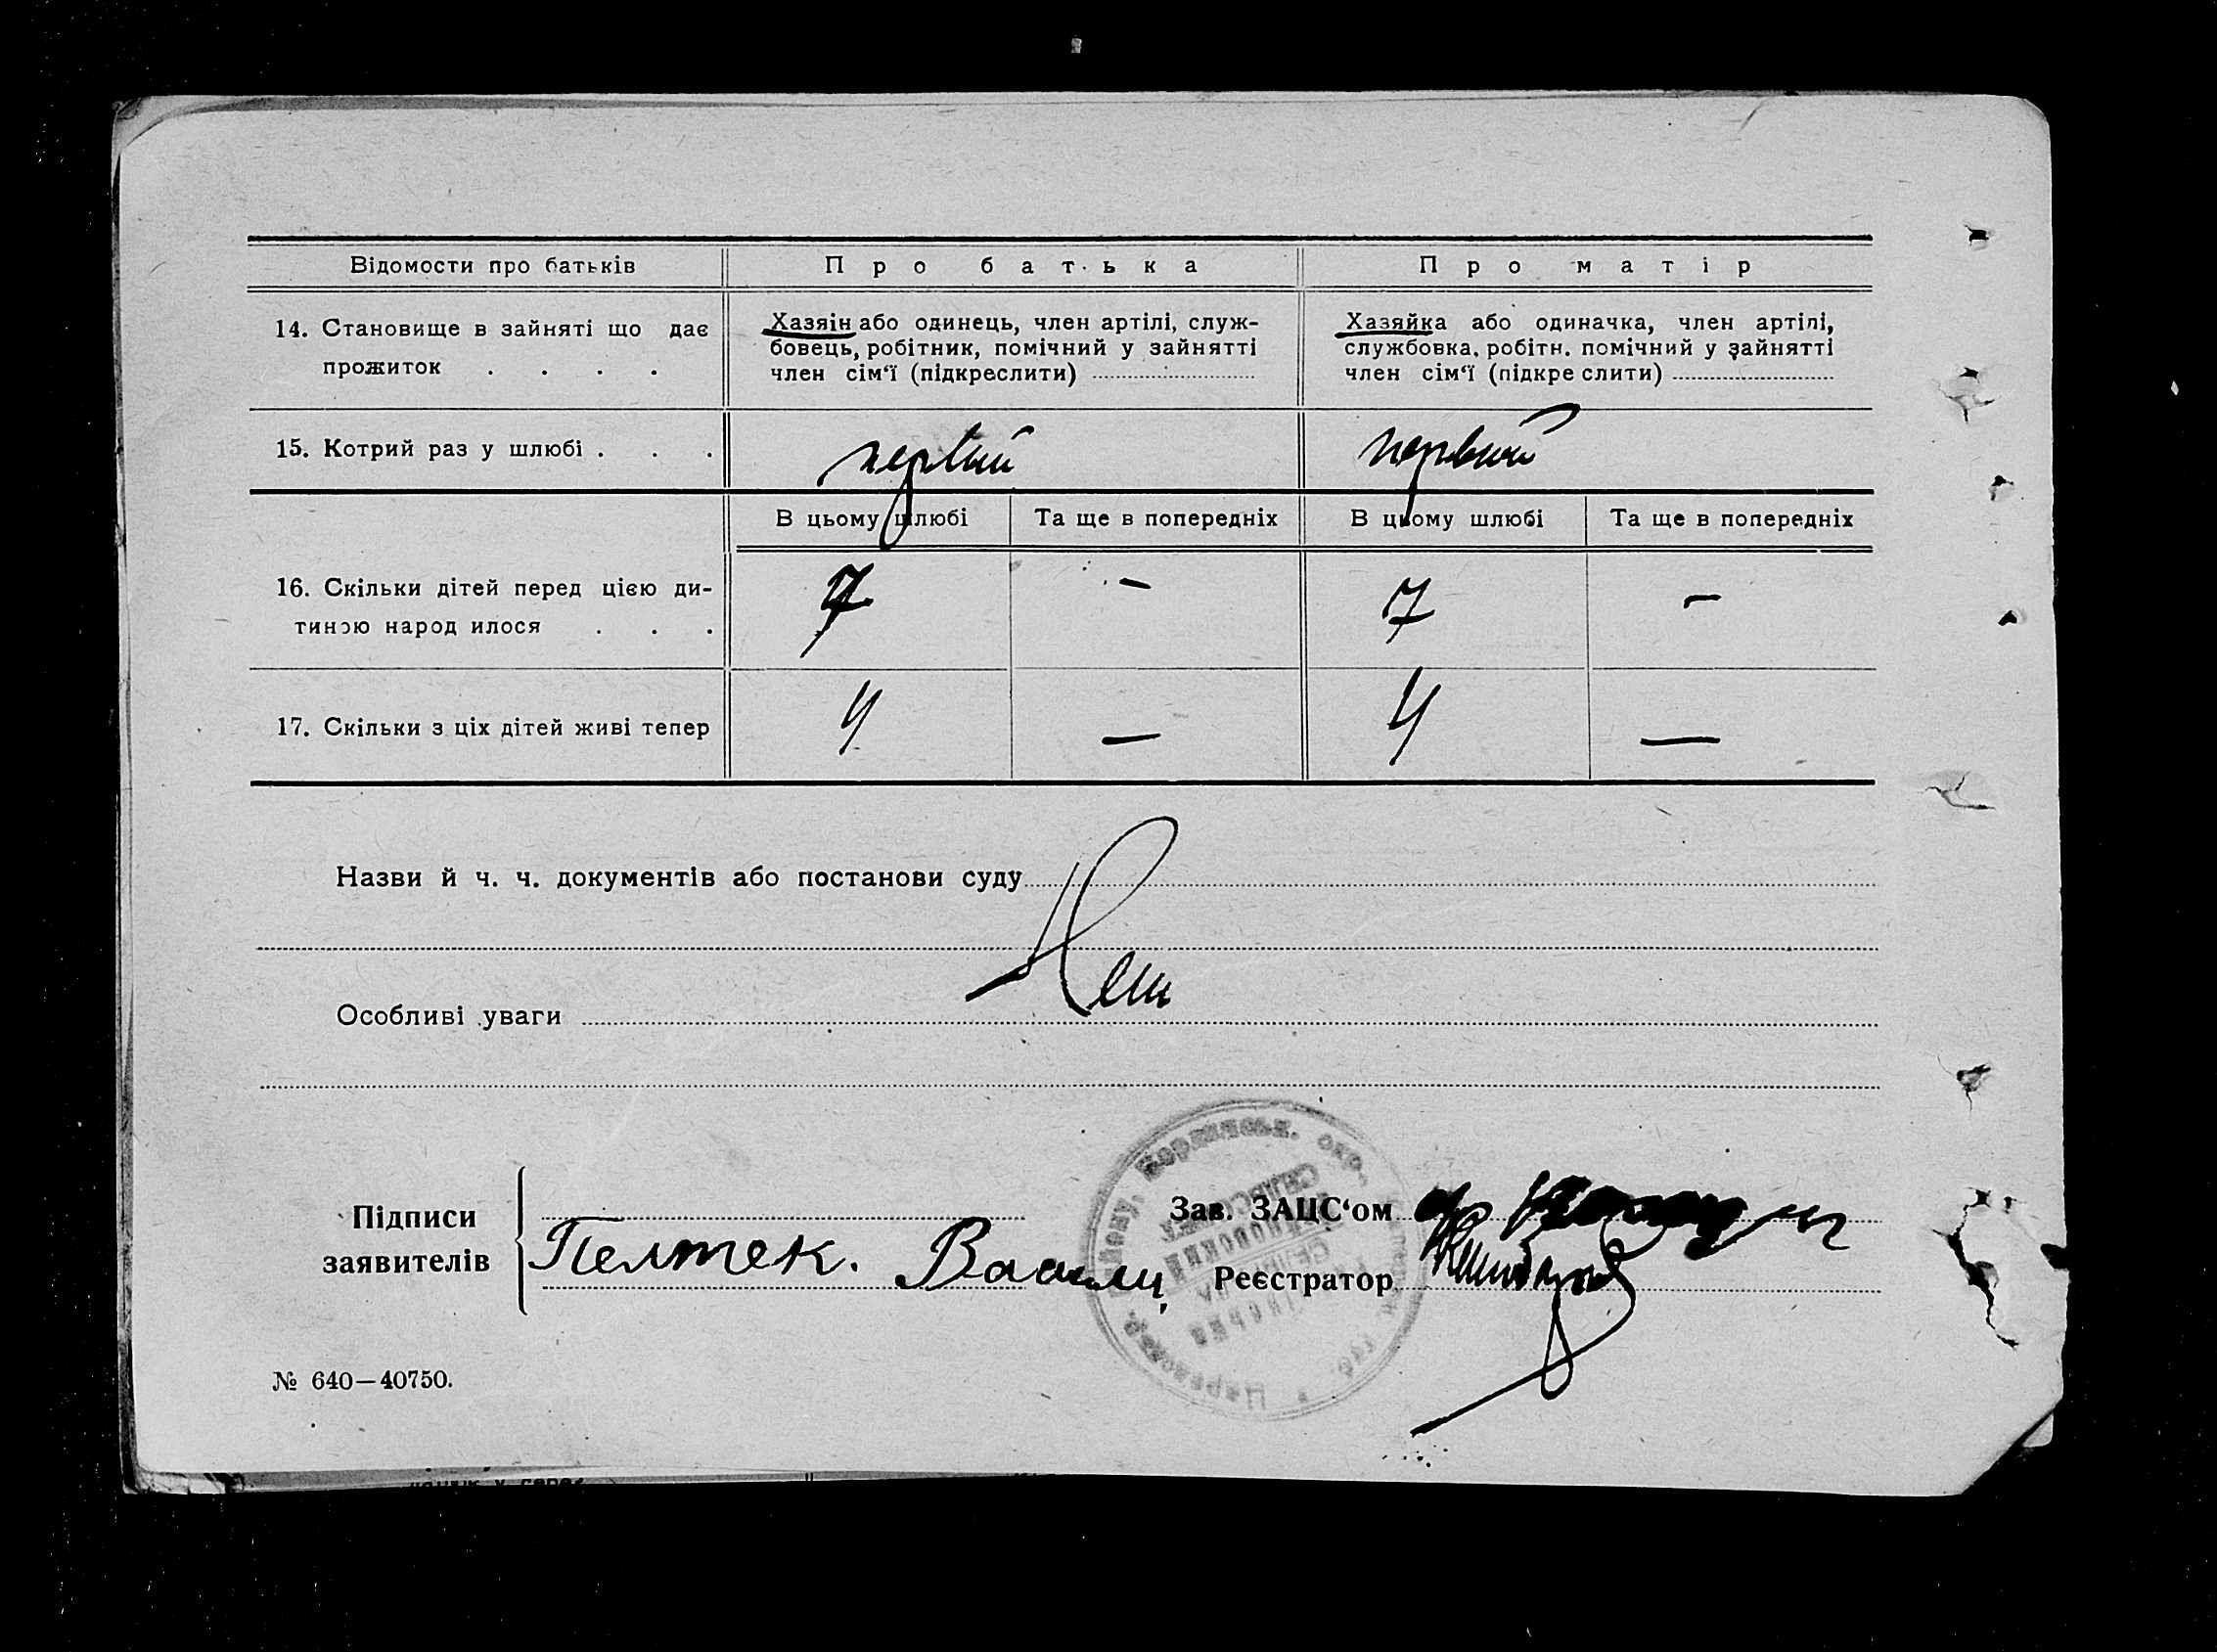 Відомости про батьків
Про батька
Про матір
14. Становище в зайняті що дає
прожиток . . . .
Хазяін або одинець, член артілі, служ-
бовець, робітник, помічний у зайнятті
член сім‘ї (підкреслити)
Хазяйка або одиначка, член артілі,
службовка, робітн. помічний у зайнятті
член сім‘ї (підкре слити)
15. Котрий раз у шлюбі . . .
первый
первый
В цьому шлюбі
Та ще в попередніх
В цьому шлюбі
Та ще в попередніх
16. Скільки дітей перед цією ди-
тиною народ илося . . .
7
–
7
–
17. Скільки з ціх дітей живі тепер
4
—
4
—
Назви й ч. ч. документів або постанови суду
Нет
Особливі уваги
Підписи
заявителів
Пелтек. Васили
Зав. ЗАЦС‘ом
Реєстратор
№ 640—40750.